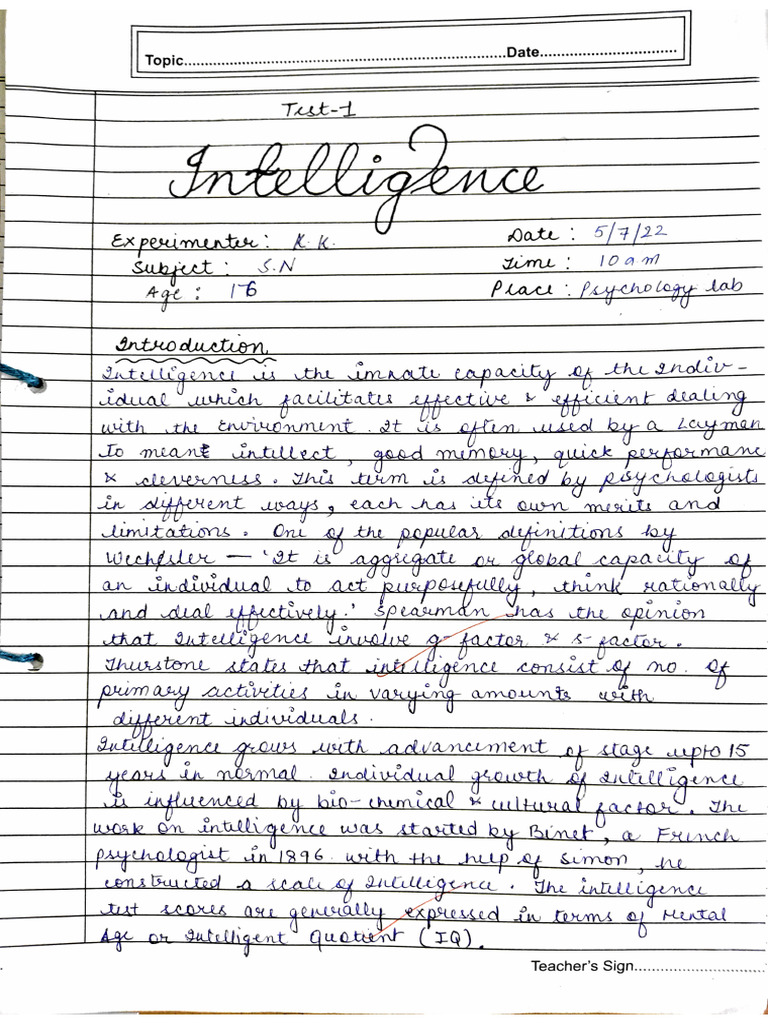 Topic..........................................................................Date................................
Test-1
Intelligence
Experimenter: K.K.
Date: 5/7/22
Subject: S.N
Time: 10am
Age: 16
Place: Psychology lab
Introduction
Intelligence is the innate capacity of the Indiv-
idual which facilitates effective & efficient dealing
with the Environment. It is often used by a Layman
to meant intellect, good memory, quick performanc
& cleverness. This term is defined by psychologists
in different ways, each has its own merits and
limitations. One of the popular definitions by
Wechfsler — 'It is aggregate or global capacity of
an individual to act purposefully, think rationally
and deal effectively.' Spearman has the opinion
that Intelligence involve g-factor & s-factor.
Thurstone states that intelligence consist of no. of
primary activities in varying amounts with
different individuals.
Intelligence grows with advancement of stage upto 15
years in normal. Individual growth of Intelligence
is influenced by bio-chemical & cultural factor. The
work on intelligence was started by Binet, a French
psychologist in 1896. with the help of Simon, he
constructed a scale of Intelligence. The intelligence
test scores are generally expressed in terms of Mental
Age or Intelligent Quotient (IQ).
Teacher's Sign..............................